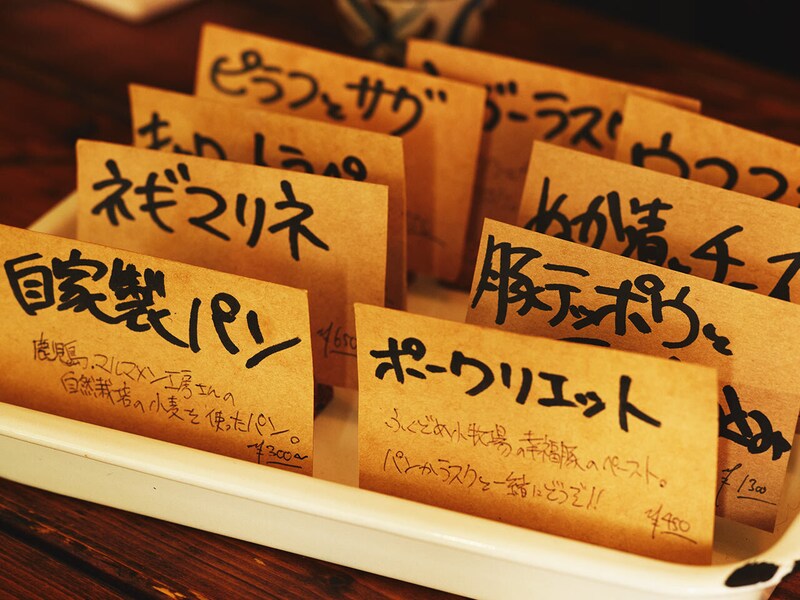 ピラフとサヴ
ーラスク
ネギマリネ
¥650
ウフフ
ぬか漬とチーズ
自家製パン
鹿児島、マルマメン工房さんの
自然栽培の小麦を使ったパン。
¥300〜
豚テッポウと
¥1300
ポークリエット
ふくどめ小牧場の幸福豚のペースト。
パンかラスクと一緒にどうぞ!!
¥450